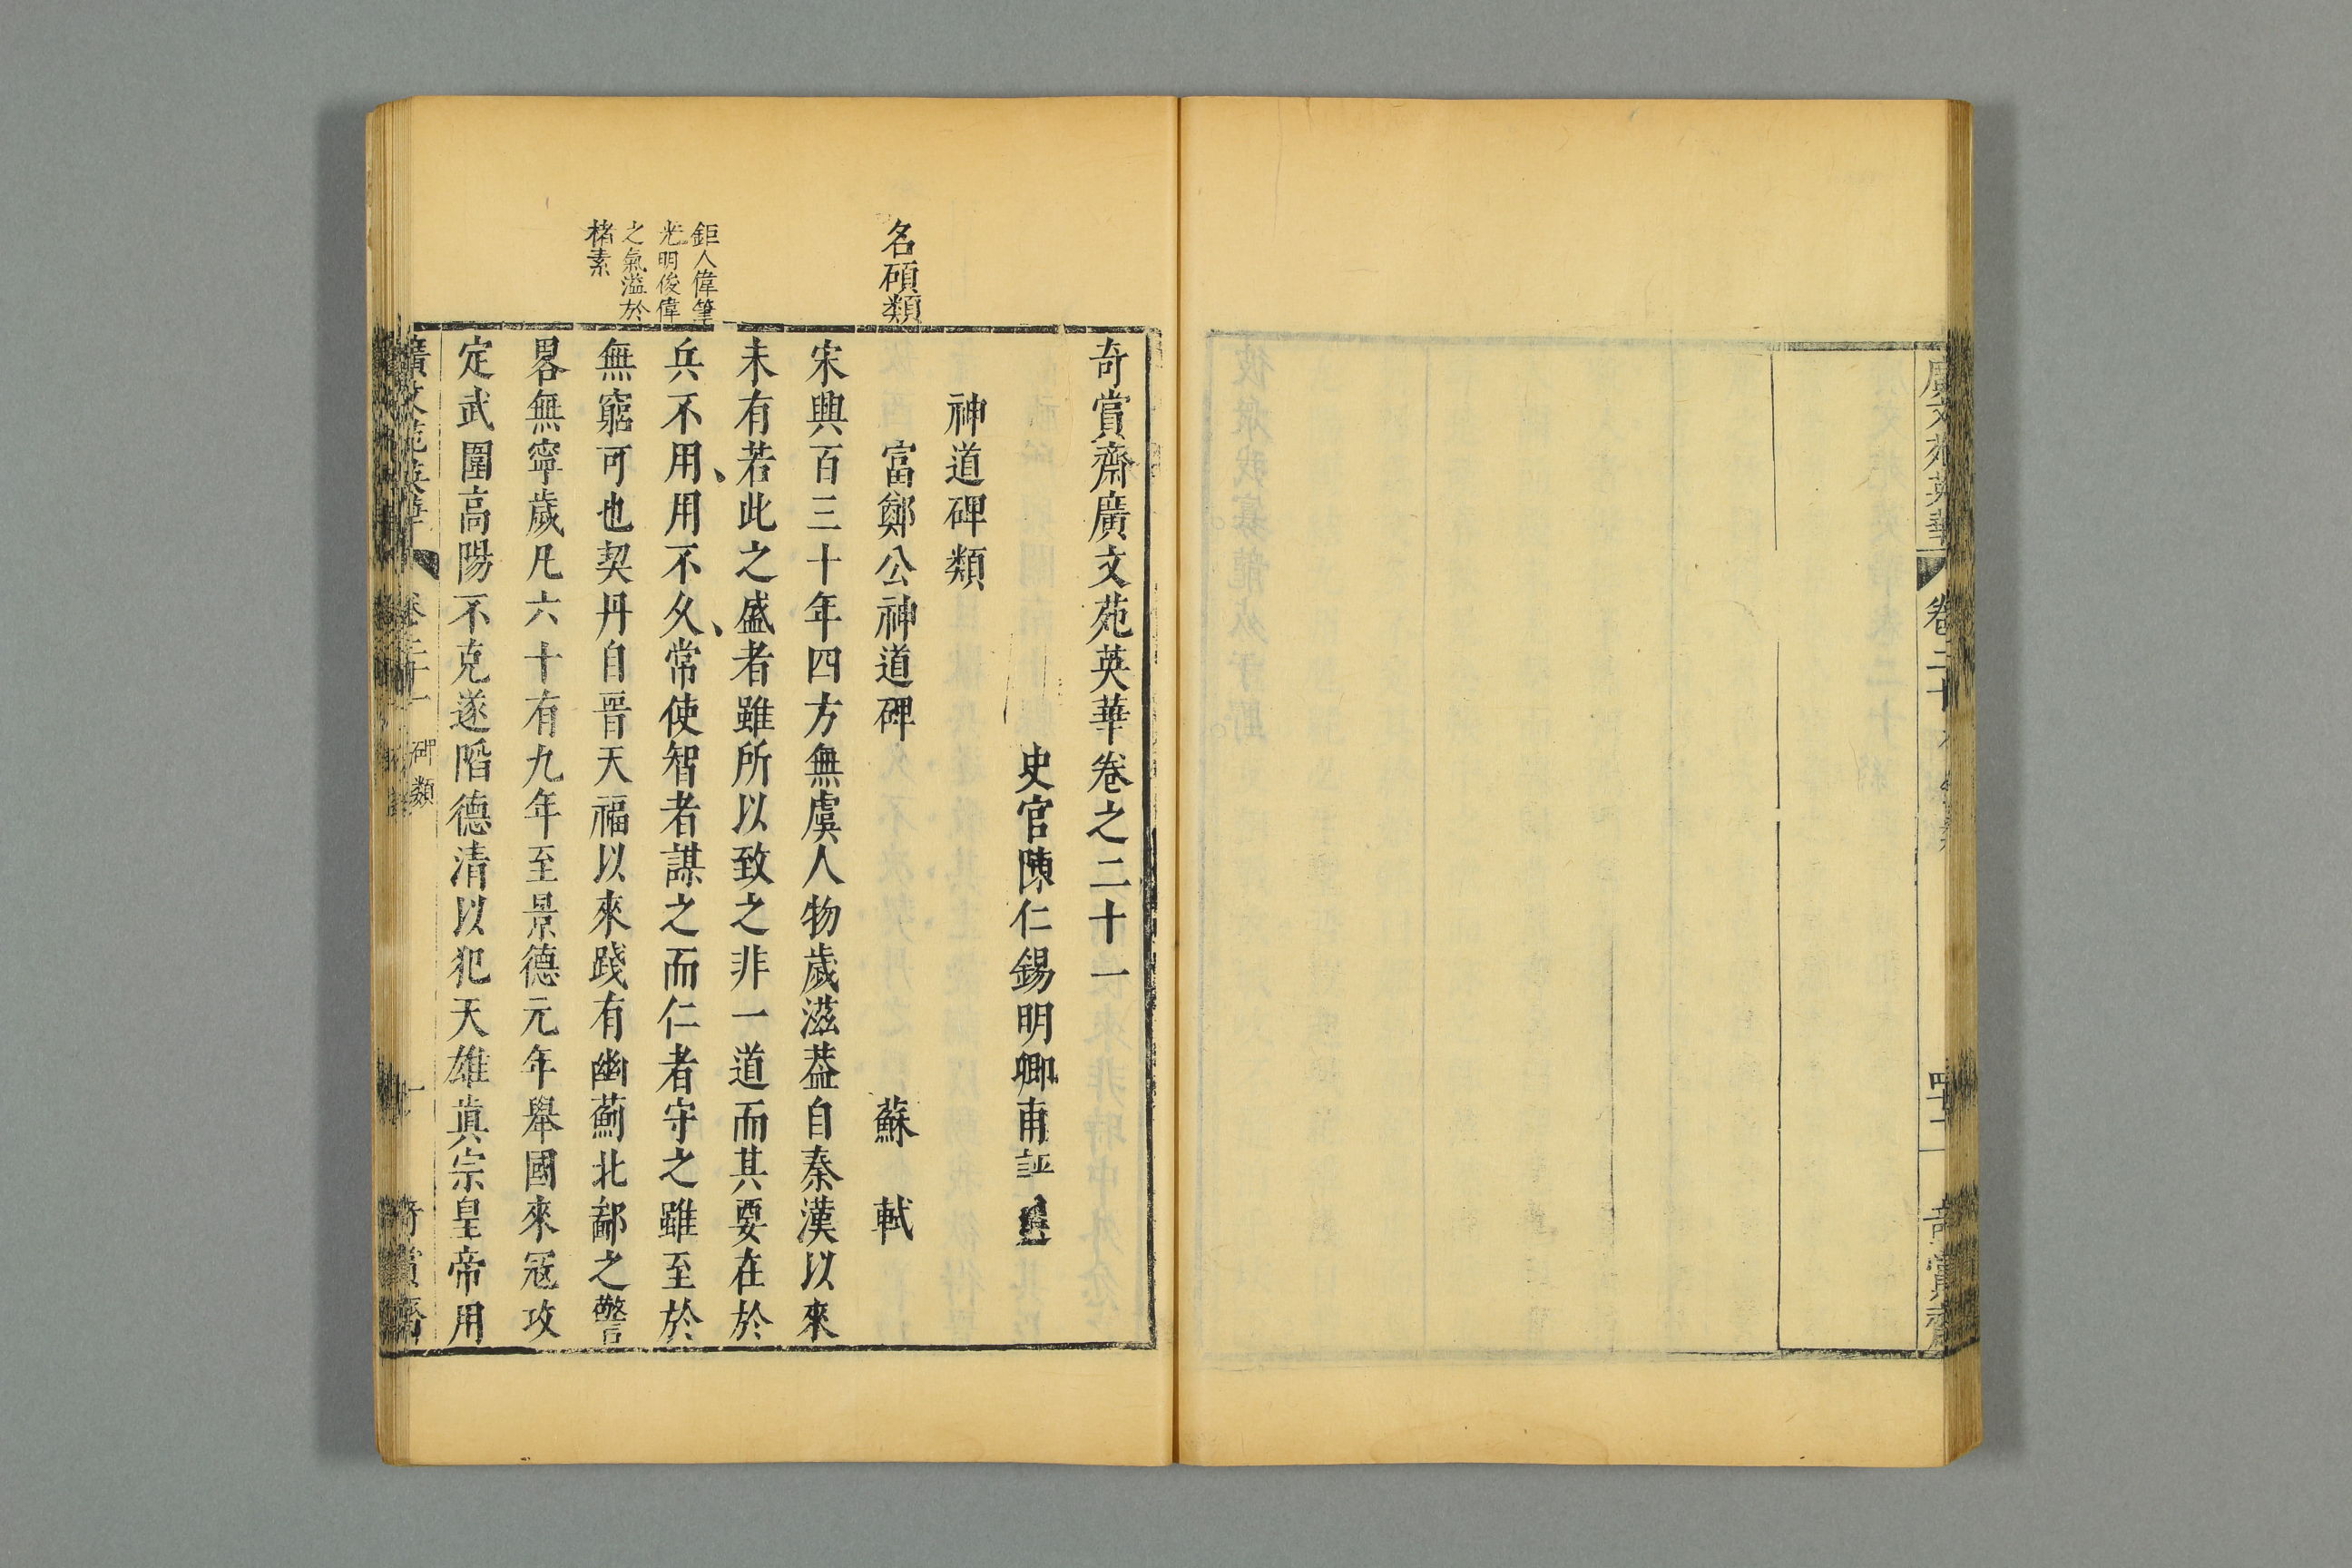 廣文苑英華
卷二十
四十二
奇賞齋
奇賞齋廣文苑英華卷之二十一
史官陳仁錫明卿甫評選
神道碑類
名碩類
富鄭公神道碑
蘇軾
宋興百三十年四方無虞人物歲滋葢自秦漢以來
未有若此之盛者雖所以致之非一道而其要在於
兵不用用不久常使智者謀之而仁者守之雖至於
無窮可也契丹自晉天福以來踐有幽薊北鄙之警
畧無寧歲凡六十有九年至景德元年舉國來冦攻
定武圍高陽不克遂陷德清以犯天雄眞宗皇帝用
鉅人偉筆
光明俊偉
之氣溢於
楮素
廣文苑英華
卷二十一
碑類
一
奇賞齋